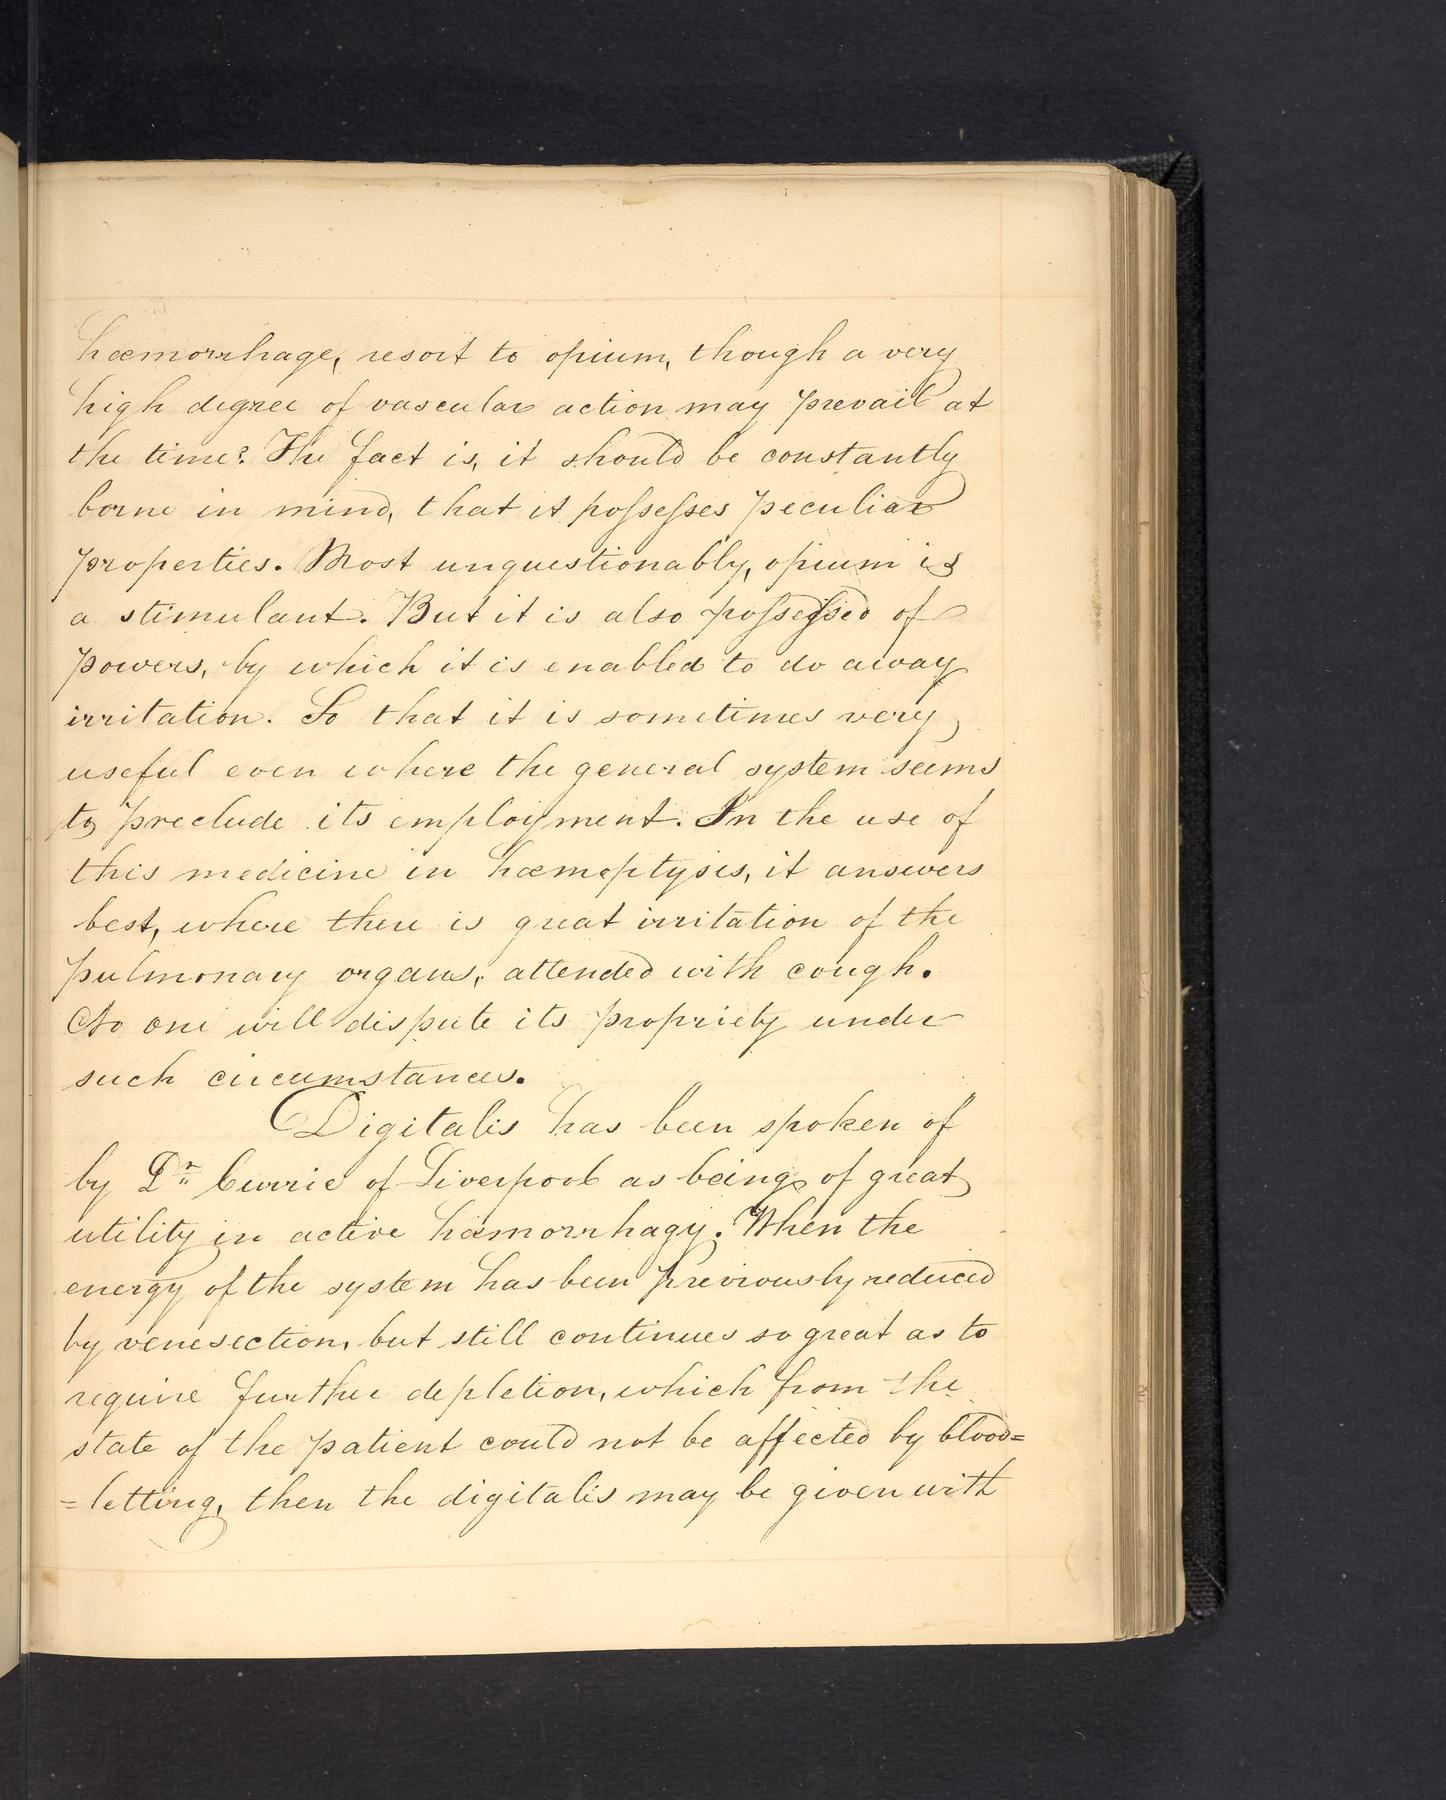 hœmorrhage, resort to opium, though a very
high degree of vascular action may prevail at
the time? The fact is, it should be constantly
borne in mind, that it possesses peculiar
properties. Most unquestionably, opium is
a stimulant. But it is also possessed of
powers, by which it is enabled to do away
irritation. So that it is sometimes very
useful even where the general system seems
to preclude its employment. In the use of
this medicine in hœmoptysis, it answers
best, where there is great irritation of the
pulmonary organs, attended with cough.
No one will dispute its propriety under
such circumstances.
Digitalis has been spoken of
by Dr. Currie of Liverpool as being of great
utility in active hœmorrhagy. When the
energy of the system has been previously reduced
by venesection, but still continues so great as to
require further depletion, which from the
state of the patient could not be affected by blood=
=letting, then the digitalis may be given with